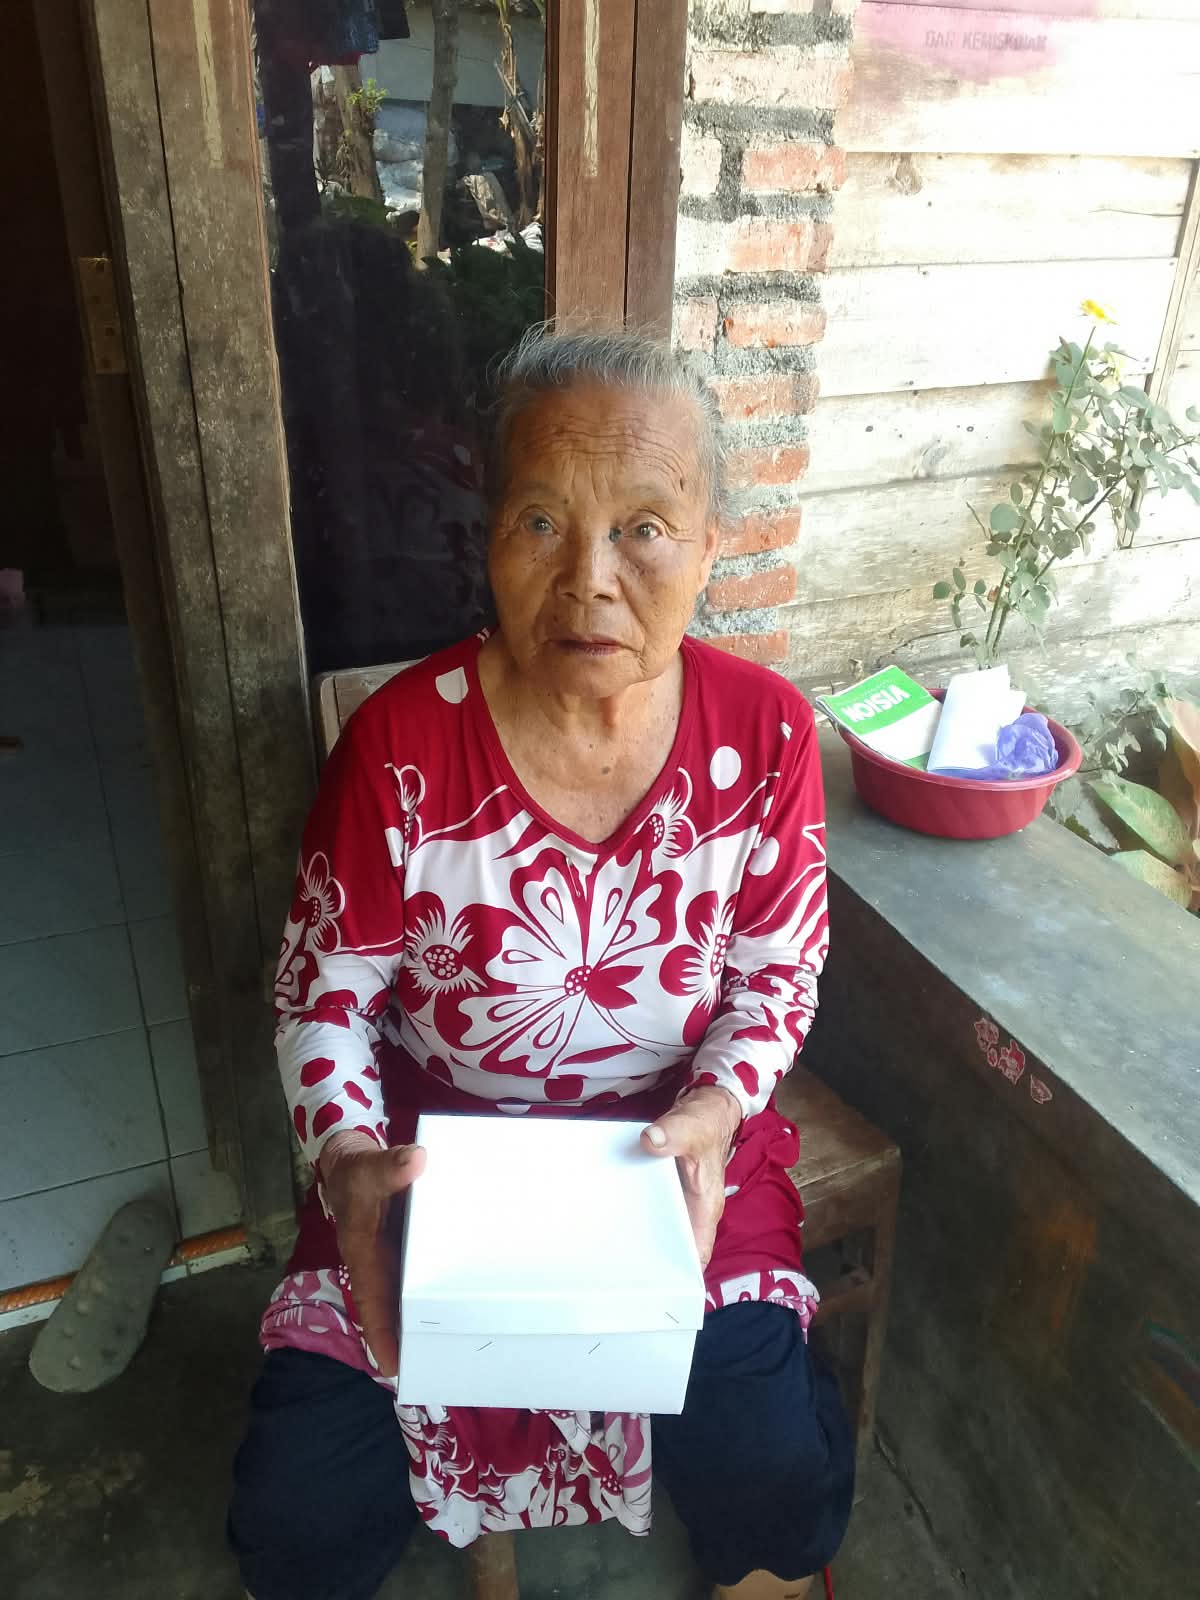 DAN KEMISKINAN
VISION